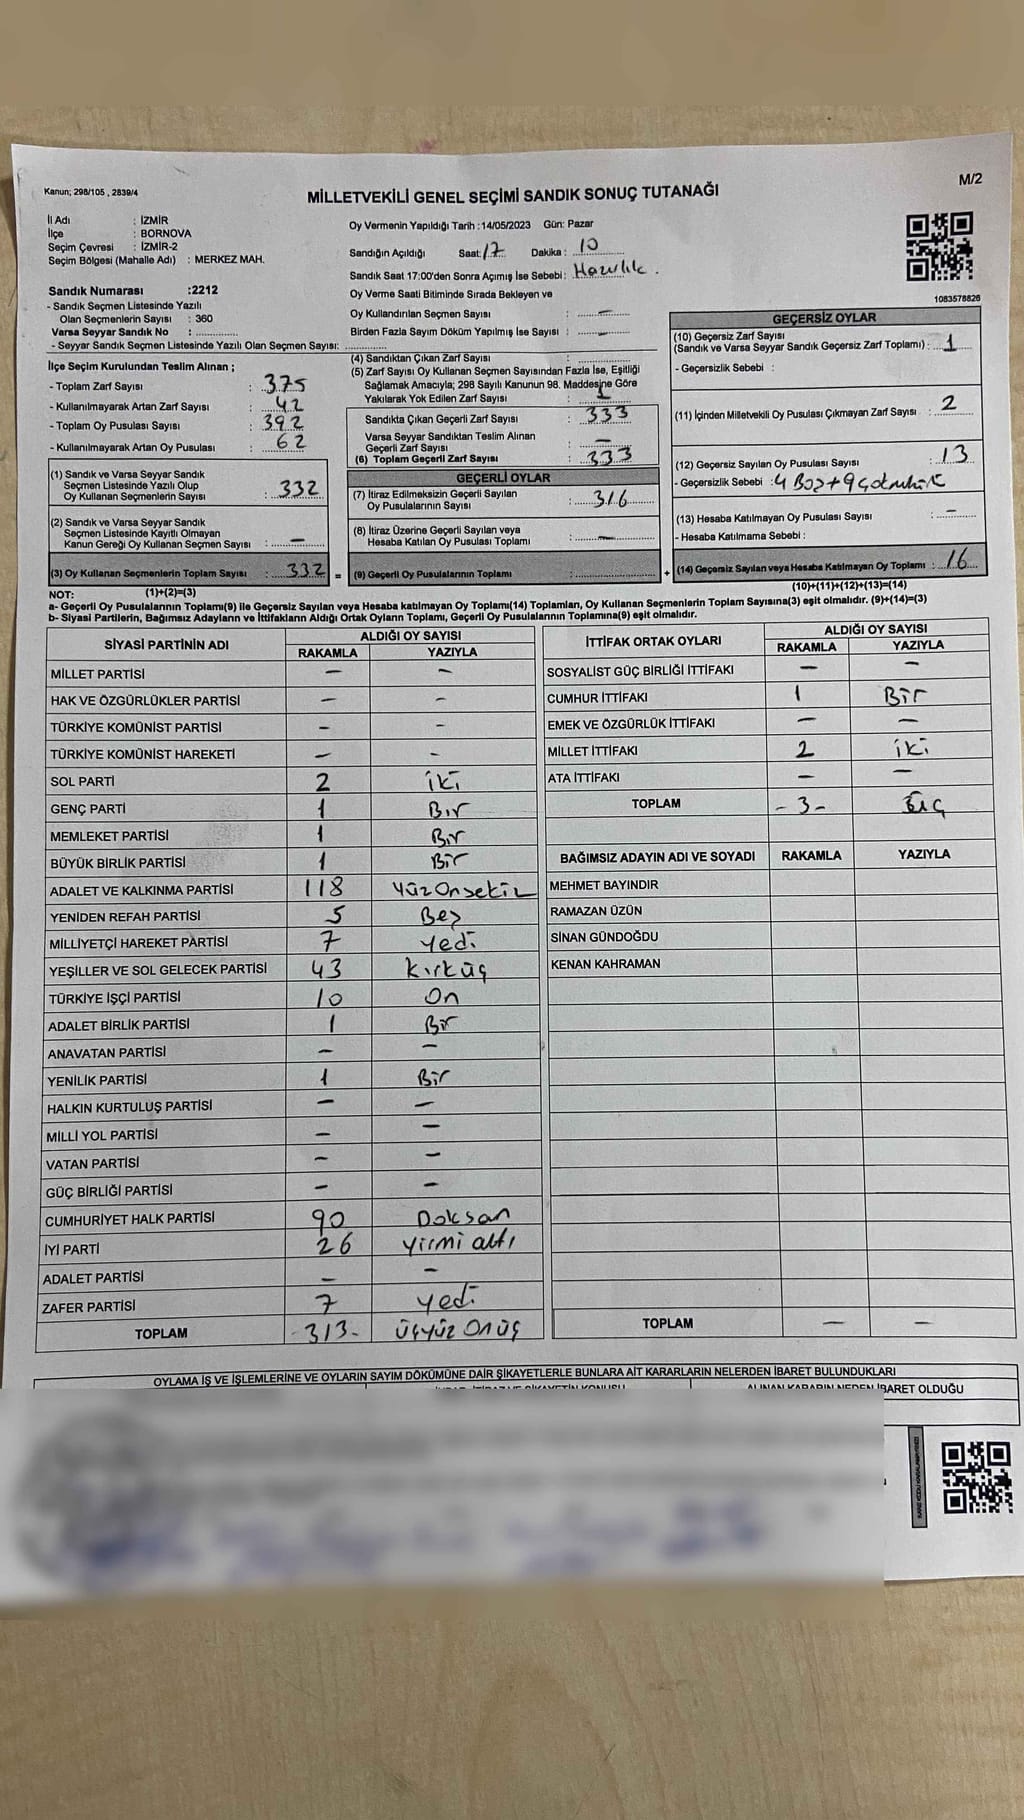 Kanun; 298/105 , 2839/4
MİLLETVEKİLİ GENEL SEÇİMİ SANDIK SONUÇ TUTANAĞI
M/2
İl Adı : İZMİR
İlçe : BORNOVA
Seçim Çevresi : İZMİR-2
Seçim Bölgesi (Mahalle Adı) : MERKEZ MAH.
Oy Vermenin Yapıldığı Tarih :14/05/2023 Gün: Pazar
Sandığın Açıldığı Saat: 17 Dakika : 10
Sandık Saat 17:00'den Sonra Açımış İse Sebebi: Hazırlık .
Sandık Numarası :2212
- Sandık Seçmen Listesinde Yazılı
Olan Seçmenlerin Sayısı : 360
Varsa Seyyar Sandık No :
- Seyyar Sandık Seçmen Listesinde Yazılı Olan Seçmen Sayısı:
Oy Verme Saati Bitiminde Sırada Bekleyen ve
Oy Kullandırılan Seçmen Sayısı : —
Birden Fazla Sayım Döküm Yapılmış İse Sayısı : —
1083578826
İlçe Seçim Kurulundan Teslim Alınan ;
- Toplam Zarf Sayısı : 375
- Kullanılmayarak Artan Zarf Sayısı : 42
- Toplam Oy Pusulası Sayısı : 392
- Kullanılmayarak Artan Oy Pusulası : 62
(1) Sandık ve Varsa Seyyar Sandık
Seçmen Listesinde Yazılı Olup
Oy Kullanan Seçmenlerin Sayısı : 332
(2) Sandık ve Varsa Seyyar Sandık
Seçmen Listesinde Kayıtlı Olmayan
Kanun Gereği Oy Kullanan Seçmen Sayısı : —
(3) Oy Kullanan Seçmenlerin Toplam Sayısı : 332 =
(4) Sandıktan Çıkan Zarf Sayısı :
(5) Zarf Sayısı Oy Kullanan Seçmen Sayısından Fazla İse, Eşitliği
Sağlamak Amacıyla; 298 Sayılı Kanunun 98. Maddesine Göre
Yakılarak Yok Edilen Zarf Sayısı : 1
Sandıkta Çıkan Geçerli Zarf Sayısı : 333
Varsa Seyyar Sandıktan Teslim Alınan
Geçerli Zarf Sayısı : —
(6) Toplam Geçerli Zarf Sayısı : 333
GEÇERLİ OYLAR
(7) İtiraz Edilmeksizin Geçerli Sayılan
Oy Pusulalarının Sayısı : 316
(8) İtiraz Üzerine Geçerli Sayılan veya
Hesaba Katılan Oy Pusulası Toplamı : —
(9) Geçerli Oy Pusulalarının Toplamı : +
GEÇERSİZ OYLAR
(10) Geçersiz Zarf Sayısı
(Sandık ve Varsa Seyyar Sandık Geçersiz Zarf Toplamı) : 1
- Geçersizlik Sebebi :
(11) İçinden Milletvekili Oy Pusulası Çıkmayan Zarf Sayısı : 2
(12) Geçersiz Sayılan Oy Pusulası Sayısı : 13
- Geçersizlik Sebebi : 4 Boş + 9
(13) Hesaba Katılmayan Oy Pusulası Sayısı : -
- Hesaba Katılmama Sebebi :
(14) Geçersiz Sayılan veya Hesaba Katılmayan Oy Toplamı : 16
NOT: (1)+(2)=(3)
(10)+(11)+(12)+(13)=(14)
a- Geçerli Oy Pusulalarının Toplamı(9) ile Geçersiz Sayılan veya Hesaba katılmayan Oy Toplamı(14) Toplamları, Oy Kullanan Seçmenlerin Toplam Sayısına(3) eşit olmalıdır. (9)+(14)=(3)
b- Siyasi Partilerin, Bağımsız Adayların ve İttifakların Aldığı Ortak Oyların Toplamı, Geçerli Oy Pusulalarının Toplamına(9) eşit olmalıdır.
SİYASİ PARTİNİN ADI ALDIĞI OY SAYISI
RAKAMLA YAZIYLA
MİLLET PARTİSİ — —
HAK VE ÖZGÜRLÜKLER PARTİSİ — —
TÜRKİYE KOMÜNİST PARTİSİ — —
TÜRKİYE KOMÜNİST HAREKETİ — —
SOL PARTİ 2 iki
GENÇ PARTİ 1 Bir
MEMLEKET PARTİSİ 1 Bir
BÜYÜK BİRLİK PARTİSİ 1 Bir
ADALET VE KALKINMA PARTİSİ 118 Yüz Onsekiz
YENİDEN REFAH PARTİSİ 5 Beş
MİLLİYETÇİ HAREKET PARTİSİ 7 yedi
YEŞİLLER VE SOL GELECEK PARTİSİ 43 kırküç
TÜRKİYE İŞÇİ PARTİSİ 10 On
ADALET BİRLİK PARTİSİ 1 Bir
ANAVATAN PARTİSİ — —
YENİLİK PARTİSİ 1 Bir
HALKIN KURTULUŞ PARTİSİ — —
MİLLİ YOL PARTİSİ — —
VATAN PARTİSİ — —
GÜÇ BİRLİĞİ PARTİSİ — —
CUMHURİYET HALK PARTİSİ 90 Doksan
İYİ PARTİ 26 yirmi altı
ADALET PARTİSİ — —
ZAFER PARTİSİ 7 yedi
TOPLAM -313- üçyüz Onüç
İTTİFAK ORTAK OYLARI ALDIĞI OY SAYISI
RAKAMLA YAZIYLA
SOSYALİST GÜÇ BİRLİĞİ İTTİFAKI — —
CUMHUR İTTİFAKI 1 Bir
EMEK VE ÖZGÜRLÜK İTTİFAKI — —
MİLLET İTTİFAKI 2 iki
ATA İTTİFAKI — —
TOPLAM -3- üç
BAĞIMSIZ ADAYIN ADI VE SOYADI RAKAMLA YAZIYLA
MEHMET BAYINDIR
RAMAZAN ÜZÜN
SİNAN GÜNDOĞDU
KENAN KAHRAMAN
TOPLAM — —
OYLAMA İŞ VE İŞLEMLERİNE VE OYLARIN SAYIM DÖKÜMÜNE DAİR ŞİKAYETLERLE BUNLARA AİT KARARLARIN NELERDEN İBARET BULUNDUKLARI
ALINAN KARARIN NEDEN İBARET OLDUĞU